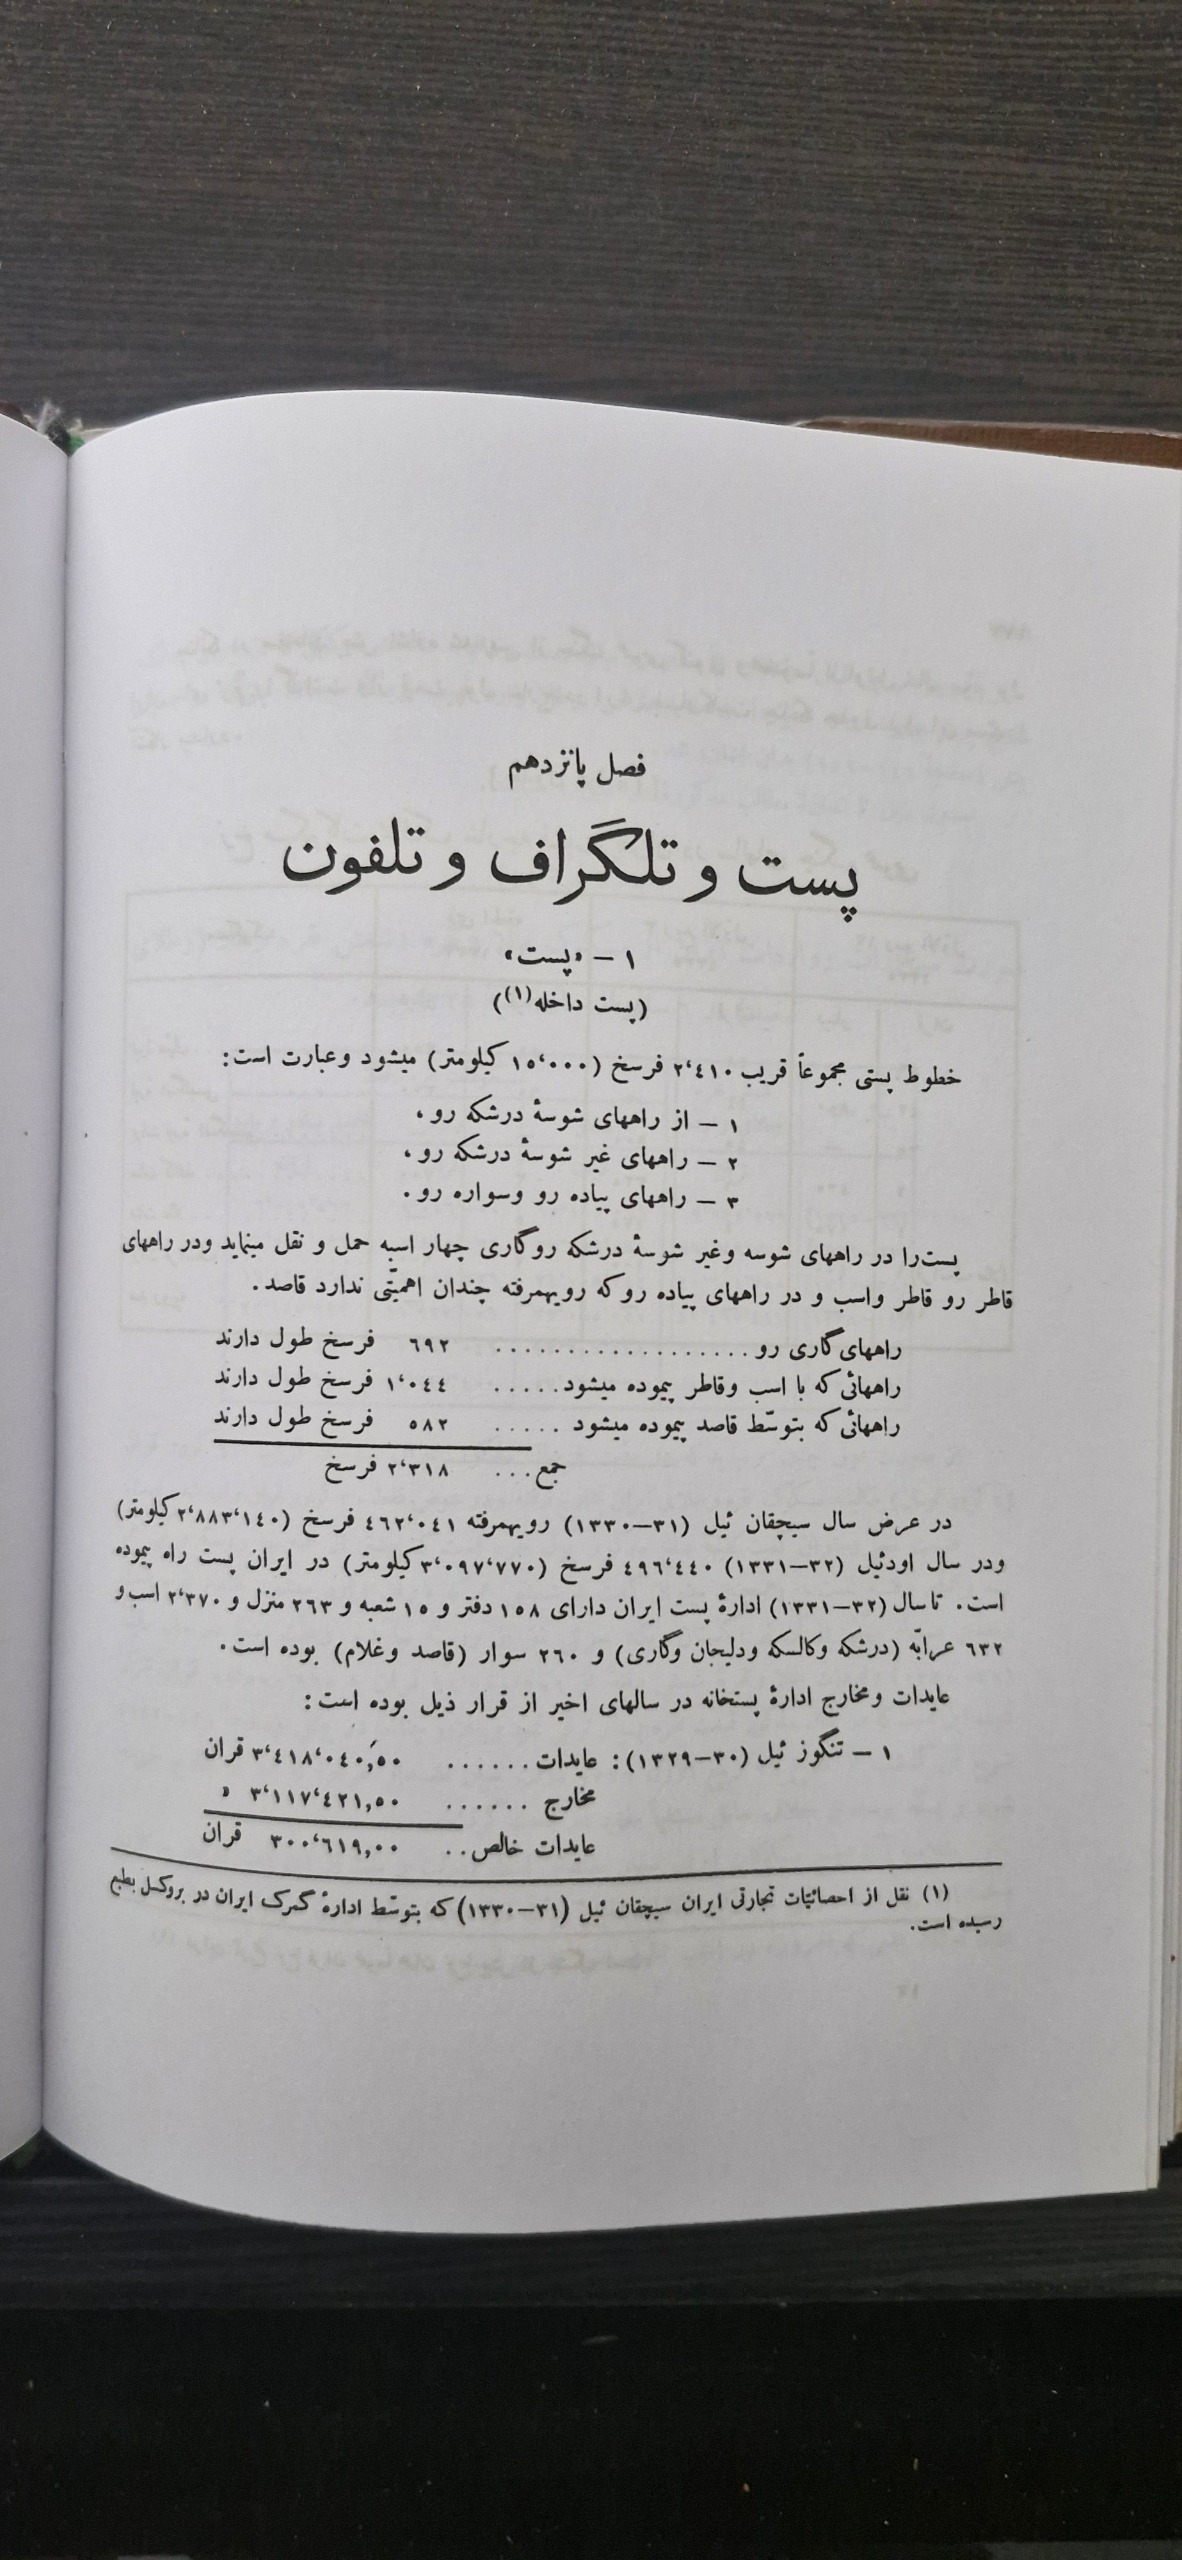 فصل پانزدهم
پست و تلگراف و تلفون
١ – «پست»
(پست داخله(١))
خطوط پستی مجموعاً قریب ٢٬٤١٠ فرسخ (١٥٬٠٠٠ کیلومتر) میشود وعبارت است:
١ – از راههای شوسهٔ درشکه رو،
٢ – راههای غیر شوسهٔ درشکه رو،
٣ – راههای پیاده رو وسواره رو.
پست‌را در راههای شوسه وغیر شوسهٔ درشکه روگاری چهار اسبه حمل و نقل مینماید ودر راههای
قاطر رو قاطر واسب و در راههای پیاده روکه رویهمرفته چندان اهمیّتی ندارد قاصد.
راههای گاری رو .................. ٦٩٢ فرسخ طول دارند
راههائی که با اسب وقاطر پیموده میشود..... ١٬٠٤٤ فرسخ طول دارند
راههائی که بتوسّط قاصد پیموده میشود ..... ٥٨٢ فرسخ طول دارند
جمع... ٢٬٣١٨ فرسخ
در عرض سال سیچقان ئیل (٣١–١٣٣٠) رویهمرفته ٤٦٢٬٠٤١ فرسخ (٢٬٨٨٣٬١٤٠ کیلومتر)
ودر سال اودئیل (٣٢–١٣٣١) ٤٩٦٬٤٤٠ فرسخ (٣٬٠٩٧٬٧٧٠ کیلومتر) در ایران پست راه پیموده
است. تاسال (٣٢–١٣٣١) ادارهٔ پست ایران دارای ١٥٨ دفتر و ١٥ شعبه و ٢٦٣ منزل و ٢٬٣٧٠ اسب و
٦٣٢ عرابّه (درشکه وکالسکه ودلیجان وگاری) و ٢٦٠ سوار (قاصد وغلام) بوده است.
عایدات ومخارج ادارهٔ پستخانه در سالهای اخیر از قرار ذیل بوده است:
١ – تنگوز ئیل (٣٠–١٣٢٩): عایدات ...... ٣٬٤١٨٬٠٤٠,٥٠ قران
مخارج ...... ٣٬١١٧٬٤٢١,٥٠ »
عایدات خالص.. ٣٠٠٬٦١٩,٠٠ قران
(١) نقل از احصائیّات تجارتی ایران سیچقان ئیل (٣١–١٣٣٠) که بتوسّط ادارهٔ گمرک ایران در بروکسل بطبع
رسیده است.